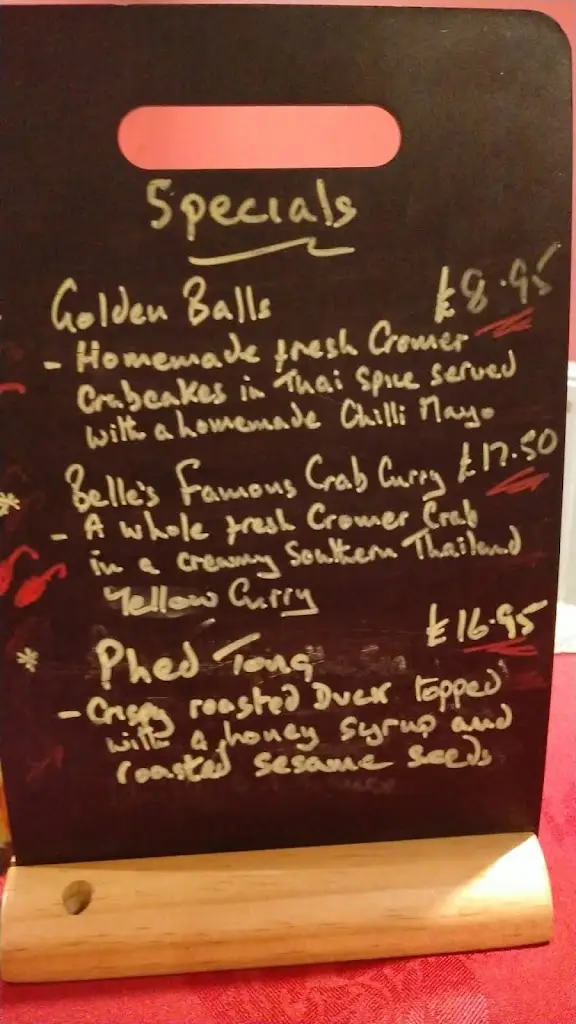 Specials
Golden Balls £8.95
- Homemade fresh Cromer
Crabcakes in Thai Spice served
with a homemade Chilli Mayo
Belle's Famous Crab Curry £17.50
* - A whole fresh Cromer Crab
in a creamy Southern Thailand
Yellow Curry
* Phed Tong £16.95
- Crispy roasted Duck topped
with a honey syrup and
roasted sesame seeds